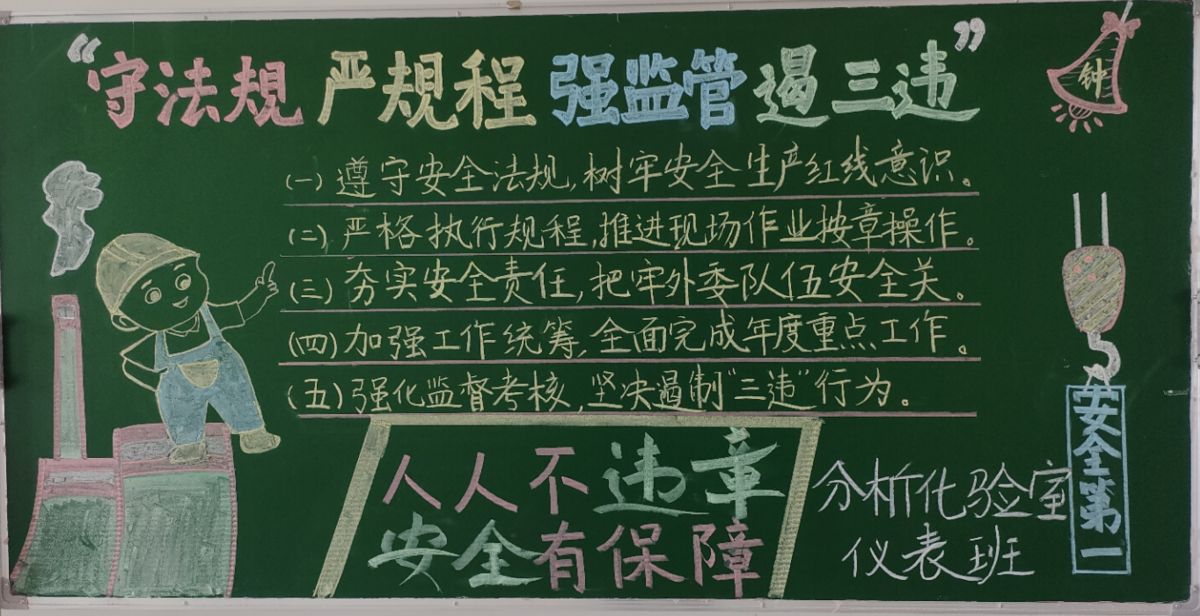 “守法規 严规程 强监管 遏三违”
钟
(一)遵守安全法规,树牢安全生产红线意识。
(二)严格执行规程,推进现场作业按章操作。
(三)夯实安全责任,把牢外委队伍安全关。
(四)加强工作统筹,全面完成年度重点工作。
(五)强化监督考核,坚决遏制“三违”行为。
人人不违章
安全有保障
分析化验室
仪表班
安全第一